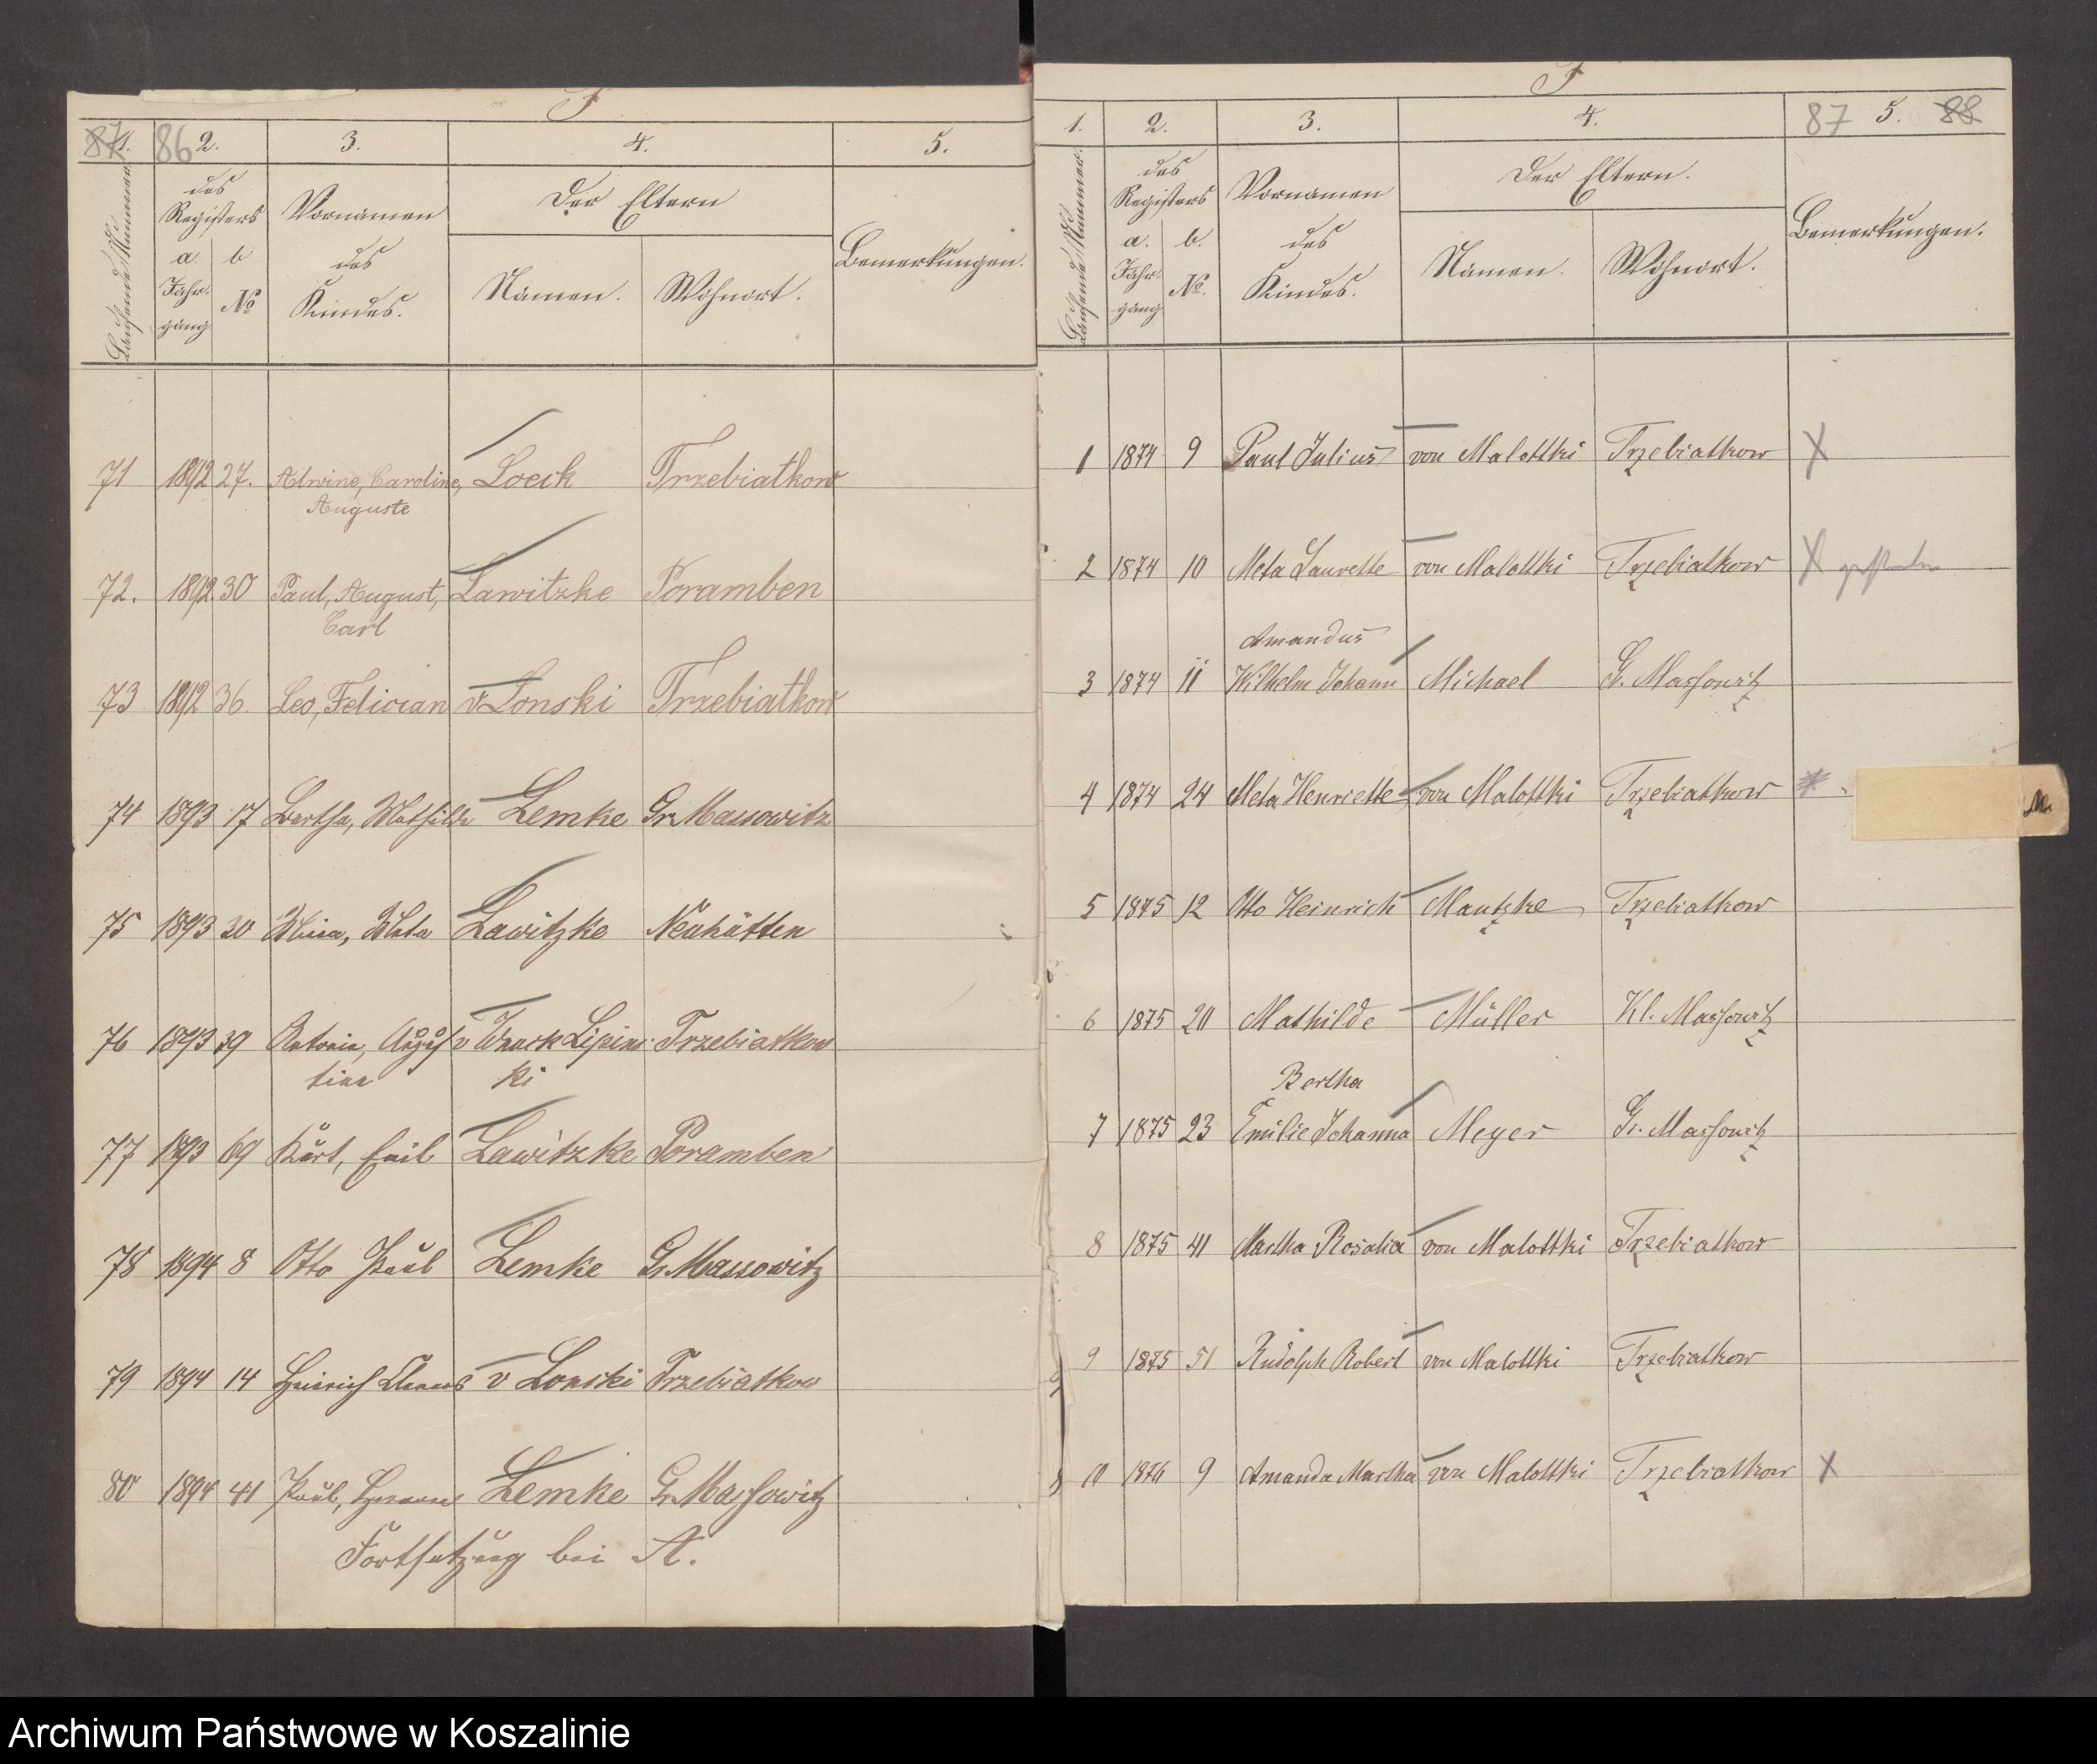 1. 86 2. 3. 4. 5.
Laufende Nummer
des Registers
Vornamen des Kindes.
Der Eltern
Bemerkungen.
a. Jahrgang
b №
Namen. Wohnort.
71 1892 27. Alwine, Caroline, Loeck Trzebiatkow
Auguste
72. 1892 30 Paul, August, Lawitzke Poramben
Carl
73 1892 36. Leo, Felician v Lonski Trzebiatkow
74 1893 17 Bertha, Mathilde Lemke Gr. Massowitz
75 1893 20 Meta Lawitzke Neuhütten
76 1893 39 Antonie, Augus v Lipins- Trzebiatkow
tine ki
77 1893 69 Kurt, Emil Lawitzke Poramben
78 1894 8 Otto Paul Lemke Gr. Massowitz
79 1894 14 Heinrich Clemens v Lonski Trzebiatkow
80 1894 41 Paul, Hermann Lemke Gr. Massowitz
Fortsetzung bei A.
1. 2. 3. 4. 87 5. 88
Laufende Nummer.
des Registers
Vornamen des Kindes.
Der Eltern.
Bemerkungen.
a. Jahrgang
b. №.
Namen. Wohnort.
1 1874 9 Paul Julius von Malottki Trzebiatkow X
2 1874 10 Meta Laurette von Malottki Trzebiatkow X gestorben
Amandus
3 1874 11 Wilhelm Johann Michael Gr. Massowitz
4 1874 24 Meta Henriette von Malottki Trzebiatkow
M.
5 1875 12 Otto Heinrich Mantzke Trzebiatkow
6 1875 20 Mathilde Müller Kl. Massowitz
Bertha
7 1875 23 Emilie Johanna Meyer Gr. Massowitz
8 1875 41 Martha Rosalia von Malottki Trzebiatkow
9 1875 51 Rudolph Robert von Malottki Trzebiatkow
10 1876 9 Amanda Martha von Malottki Trzebiatkow X
Archiwum Państwowe w Koszalinie